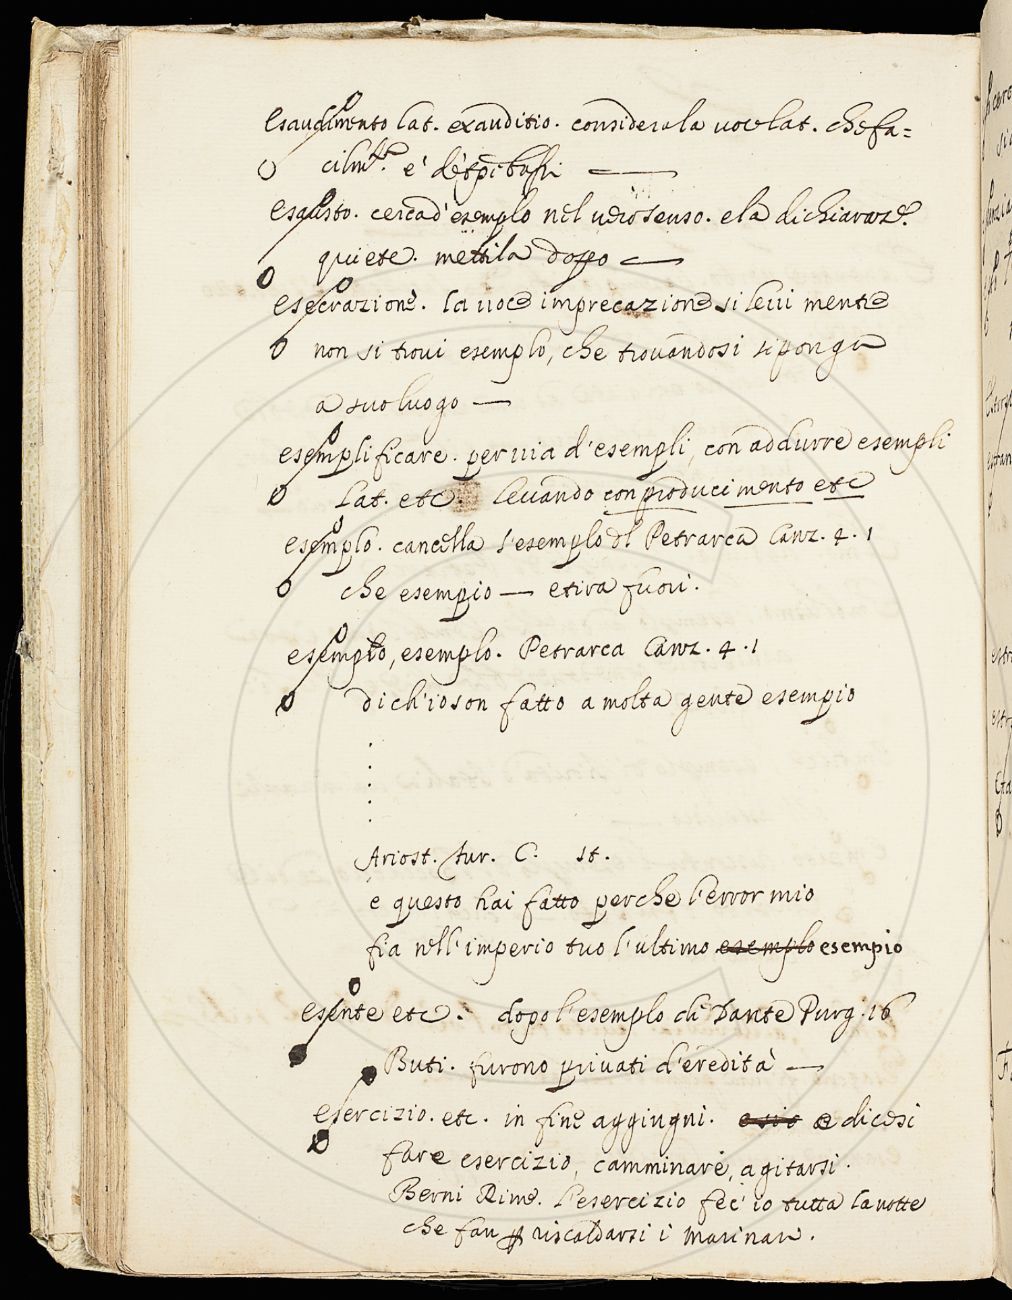 esaudimento lat. exauditio. considera la voce lat. che fa=
cilm.te e' de
esausto. cerca d'esempio nel vero senso. e la dichiaraz.e
quiete. mettila dopo —
esecrazione. la voce imprecazione si levi mentre
non si trovi esempio, che trovandosi si ponga
a suo luogo —
esemplificare. per via d'esempli, con addurre esempli
Lat. etc. levando con producimento etc
esemplo. cancella l'esemplo del Petrarca Canz. 4. 1
che esempio — e tira fuori.
esempio, esemplo. Petrarca Canz. 4. 1
di ch'io son fatto a molta gente esempio
Ariost. fur. C. st.
e questo hai fatto perche l'error mio
fia nell'imperio tuo l'ultimo esemplo esempio
esente etc. dopo l'esemplo di Dante Purg. 16
Buti. furono privati d'eredità —
esercizio. etc. in fine aggiugni. e dicesi
fare esercizio, camminare, agitarsi.
Berni Rime. L'esercizio fec'io tutta la notte
che fan p riscaldarsi i marinari.